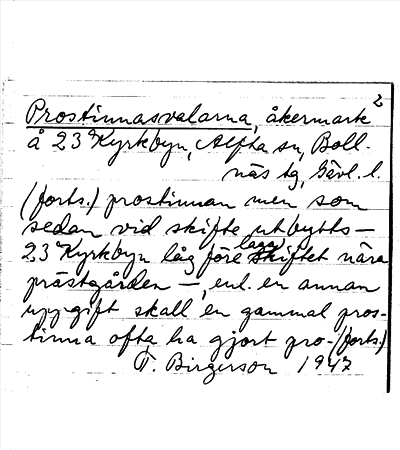 2
Prostinnasvalarna, åkermark
å 23 Kyrkbyn, Alfta sn, Boll-
näs tg, Gävl. l.
(forts.) prostinnan men som
sedan vid skifte utbytts –
laga
23 Kyrkbyn låg före skiftet nära
prästgården –, enl. en annan
uppgift skall en gammal pros-
tinna ofta ha gjort pro- (forts.)
T. Birgerson 1947